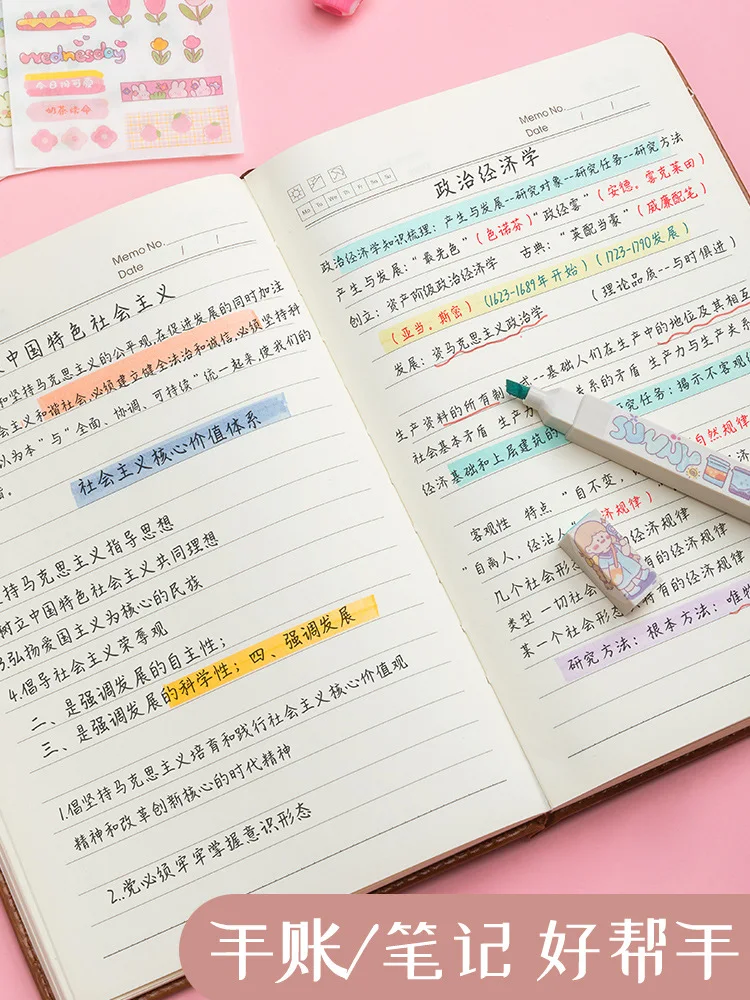 Wednesday
今日份可爱
奶茶续命
Memo No.
Date / /
中国特色社会主义
和坚持马克思主义的公平观,在促进发展的同时加注
会主义和谐社会,必须建立健全法治和诚信,必须坚持科
以为本”与“全面、协调、可持续”统一起来使我们的
社会主义核心价值体系
持马克思主义指导思想
树立中国特色社会主义共同理想
3.弘扬爱国主义为核心的民族
4.倡导社会主义荣辱观
二、是强调发展的自主性;
三、是强调发展的科学性;四、强调发展
1.倡坚持马克思主义培育和践行社会主义核心价值观
精神和改革创新核心的时代精神
2..党必须牢牢掌握意识形态
Memo No.
Date / /
Mo Tu We Th Fr Sa Su
政治经济学
政治经济学知识梳理:产生与发展--研究对象--研究任务--研究方法
产生与发展:“最先色”(色诺芬)“政经雾”(安德。雾克莱田)
创立:资产阶级政治经济学 古典:“英配当豪”(威廉配笔)
(亚当。斯密)(1623-1689年开始)(1723-1790发展)
发展:资马克思主义政治学 (理论品质--与时俱进)
生产资料的所有制 式--基础人们在生产中的地位及其相互
社会基本矛盾 生产力 关系的矛盾 生产力与生产关
经济基础和上层建筑的 研究任务:揭示不客观
自然规律
客观性 特点 “自不变,
“自离人,经沾人” 济规律)
几个社会形态 的经济规律
类型 一切社会 有的经济规律
某一个社会形态 特有的经济规律
研究方法:根本方法:唯物
SUNNY
手账/笔记 好帮手